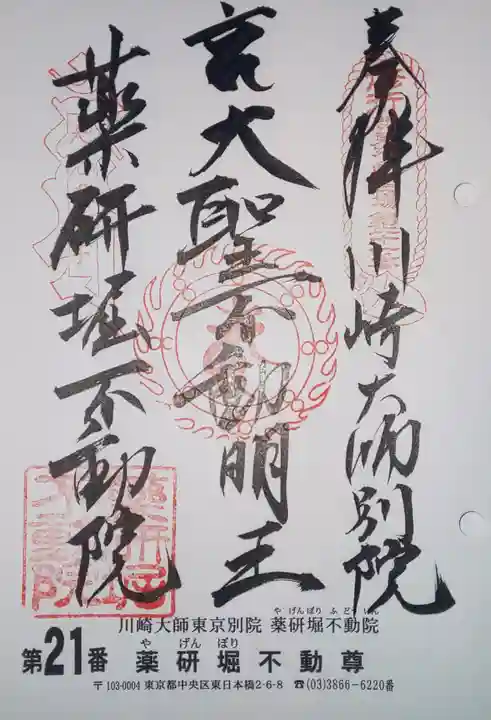 奉拝 川崎大師別院
大聖不動明王
薬研堀不動院
川崎大師東京別院 薬研堀不動院
や げんぼり ふ どういん
第21番 薬研堀不動尊
や げん ぼり
〒103-0004 東京都中央区東日本橋2-6-8 ☎(03)3866-6220番